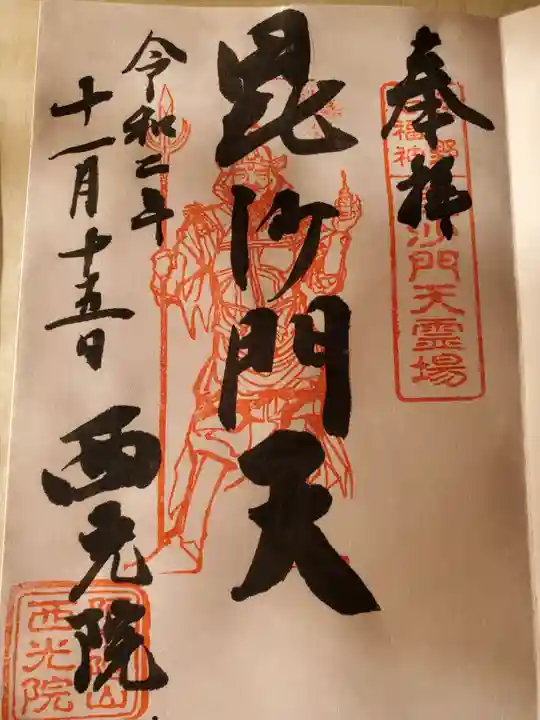 奉拝
福神
沙門天霊場
毘沙門天
令和二年
十一月十五日
西光院
西光院